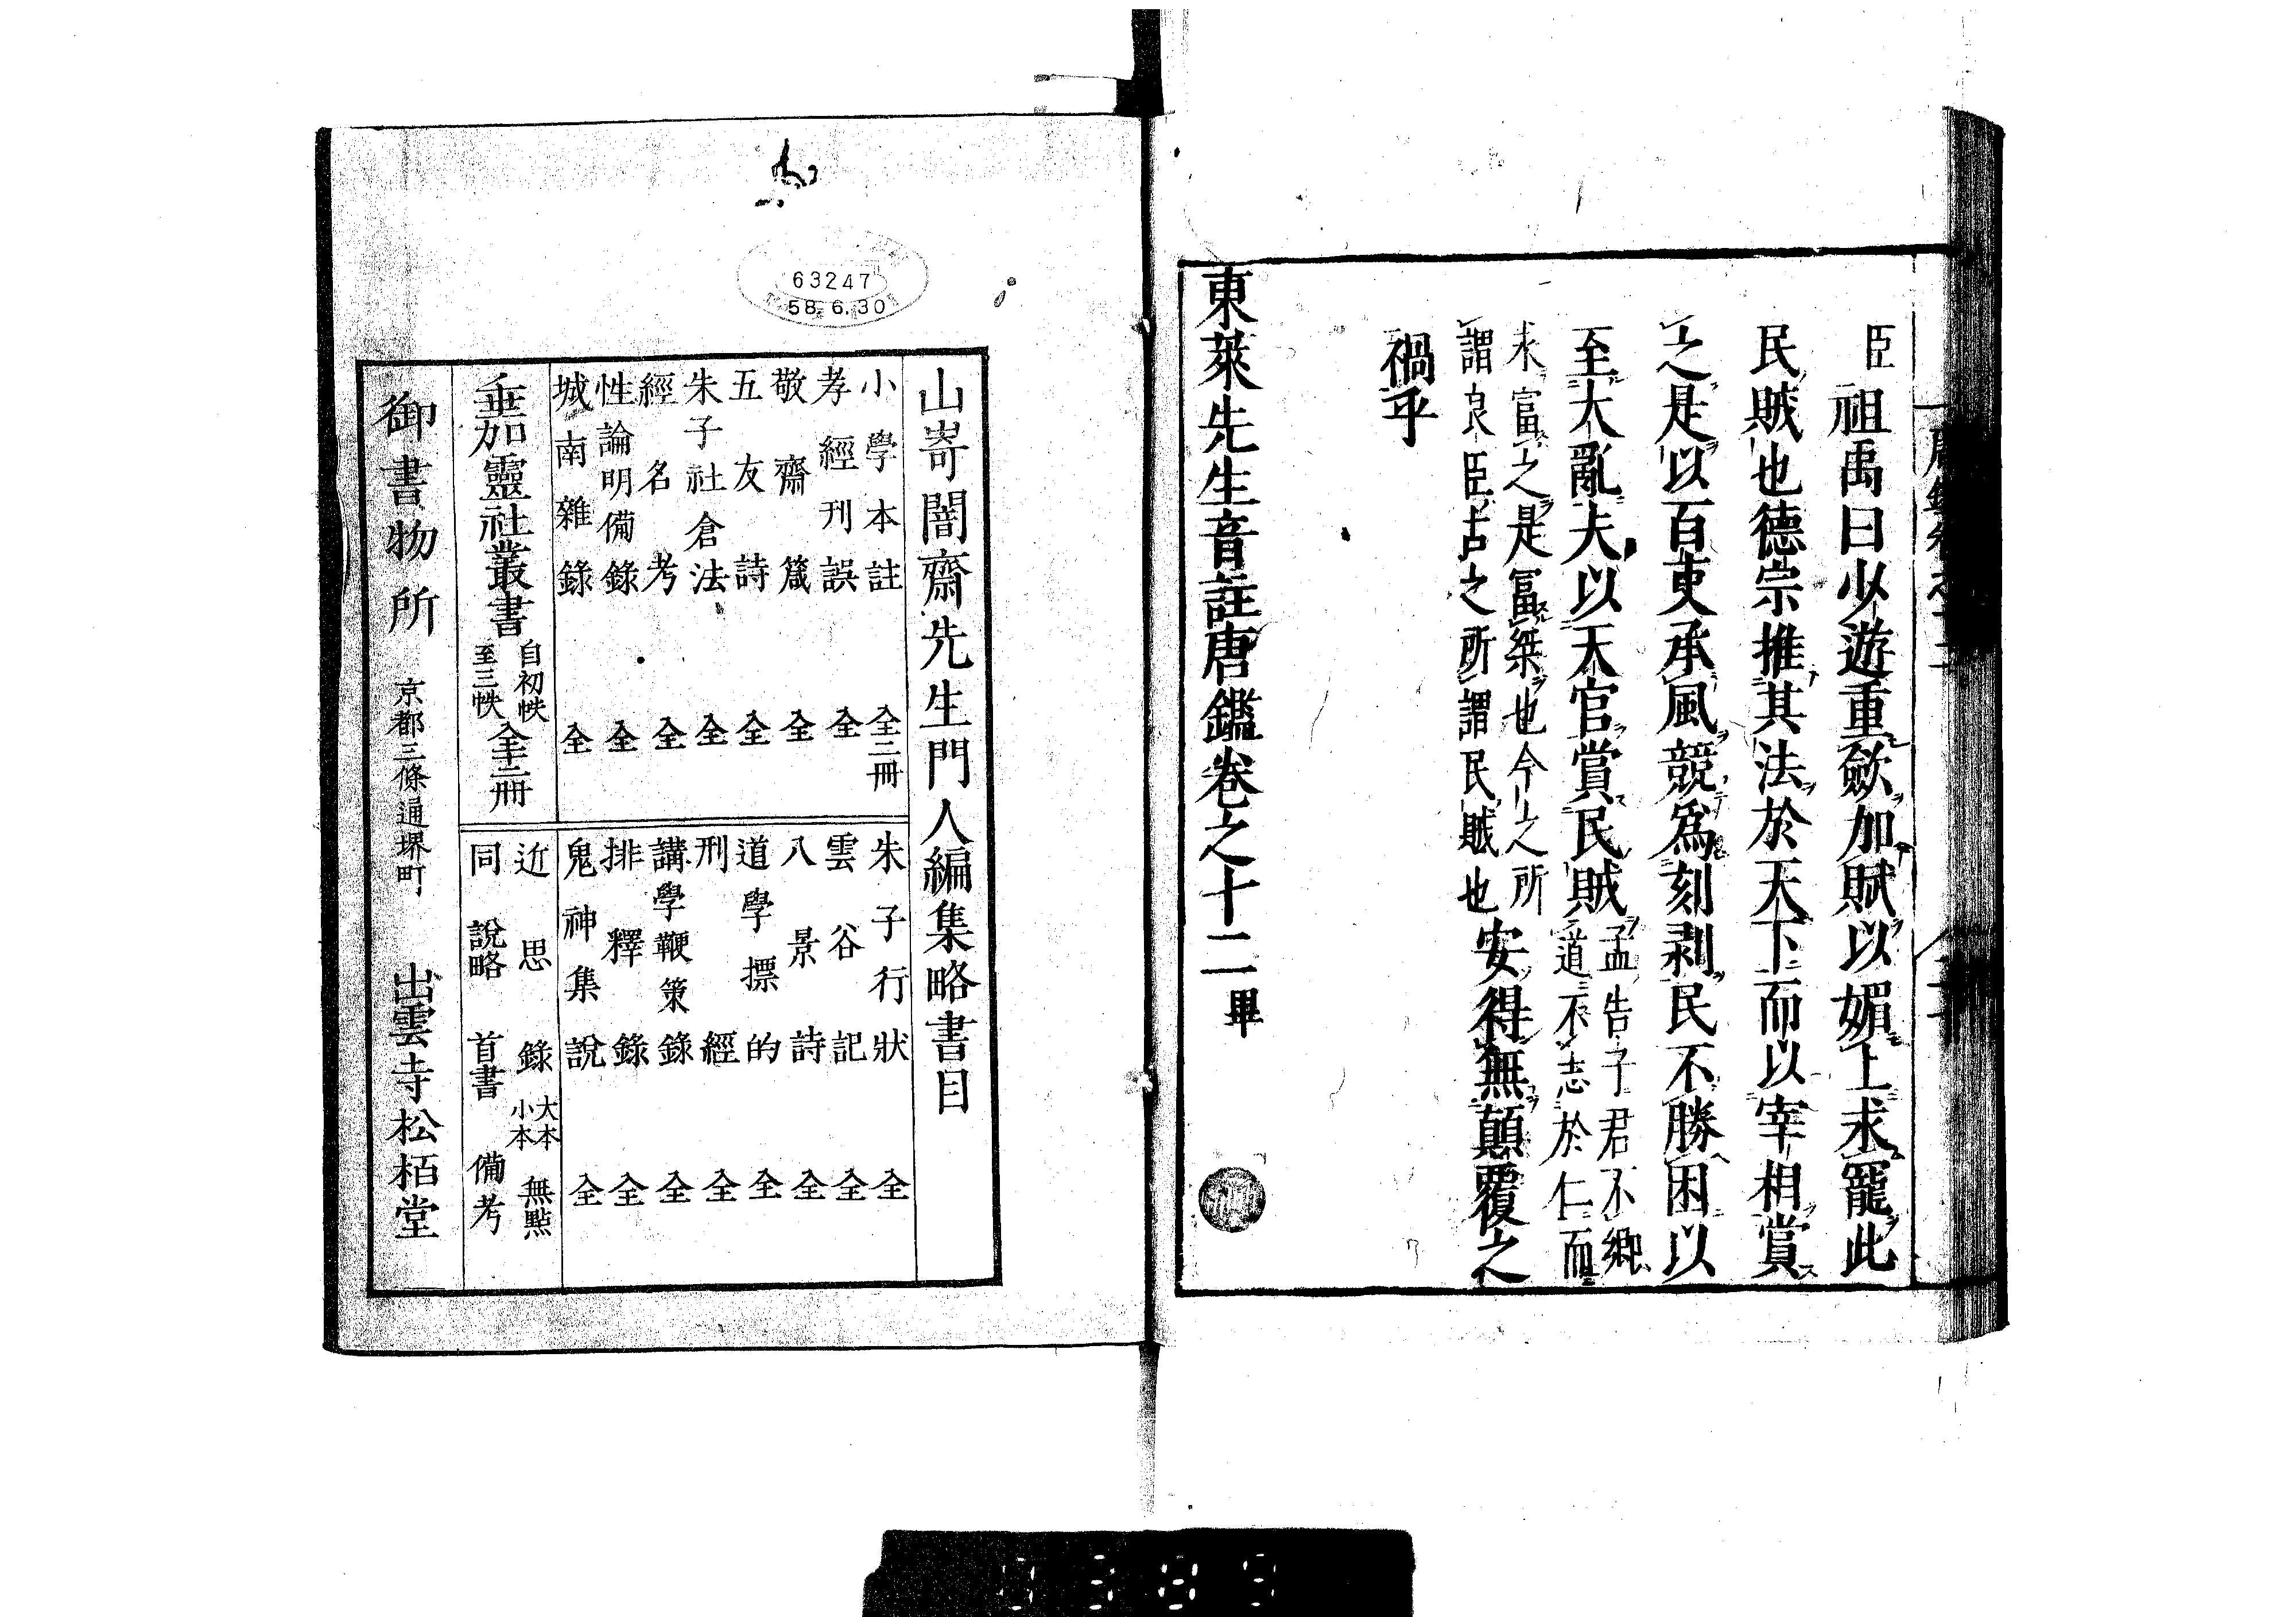 臣祖禹曰少遊重斂加賦以媚上求寵此
民賊也德宗推其法於天下而以宰相賞
之是以百吏承風競爲刻剥民不勝困以
至大亂夫以天官賞民賊孟告子君不鄉
道不志於仁而
求富之是富桀也今之所
謂良臣古之所謂民賊也安得無顛覆之
禍乎
東萊先生音註唐鑑卷之十二畢
63247
58.6.30
山嵜闇齋先生門人編集略書目
小學本註 全二冊
孝經刊誤 全
敬齋箴 全
五友詩 全
朱子社倉法 全
經名考 全
性論明備錄 全
城南雜錄 全
垂加靈社叢書 自初帙至三帙 全十二冊
朱子行狀 全
雲谷記 全
八景詩 全
道學標的 全
刑經 全
講學鞭策錄 全
排釋錄 全
鬼神集說 全
近思錄 大本小本 無點
同說略 首書 備考
御書物所 京都三條通堺町 出雲寺松栢堂